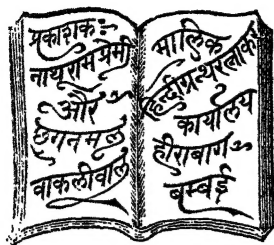 प्रकाशकः—
नाथूराम प्रेमी
और
छगनमल
वाकलीवाल
मालिक
हिन्दीग्रन्थरत्नाकर
कार्यालय
हीराबाग—
बम्बई